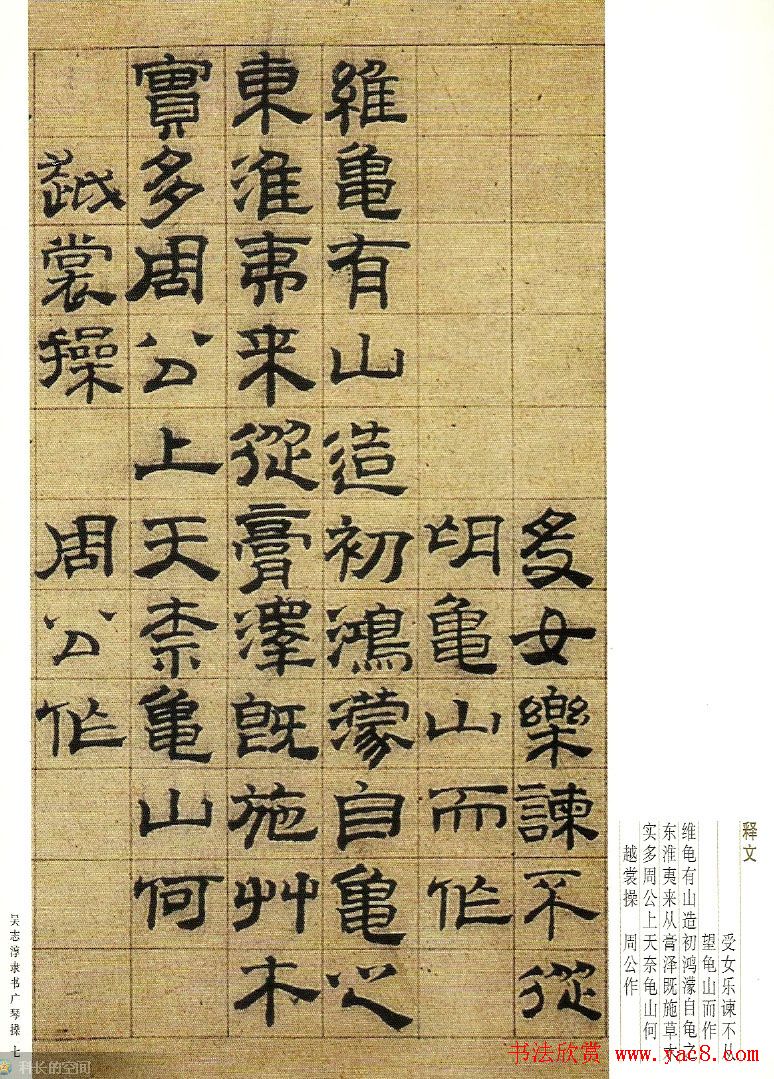 受女樂諫不從
望龜山而作
維龜有山造初鴻濛自龜之
東淮夷来從膏澤既施艸木
實多周公上天柰龜山何
越裳操 周公作
释文
受女乐谏不从
望龟山而作
维龟有山造初鸿濛自龟之
东淮夷来从膏泽既施草木
实多周公上天奈龟山何
越裳操 周公作
吴志淳隶书广琴操 七
科长的空间
书法欣赏 www.yac8.com